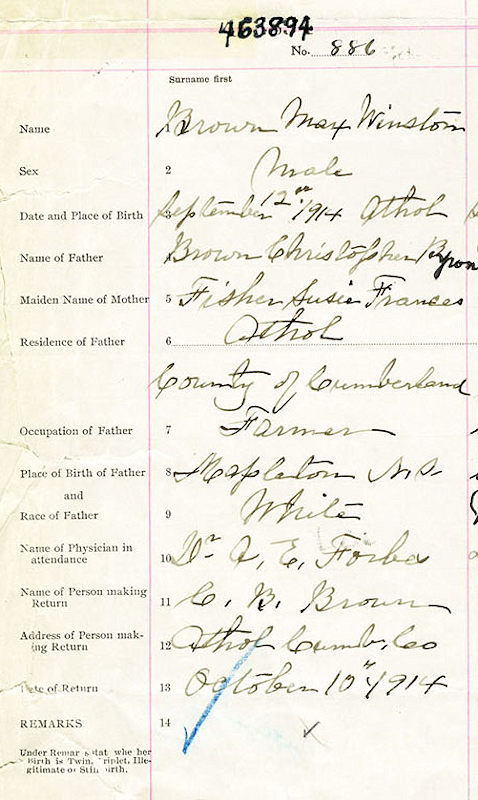 463894
No. 886
Surname first
Name 1 Brown Max Winston
Sex 2 Male
Date and Place of Birth 3 September 12th 1914 Athol
Name of Father Brown Christopher Byron
Maiden Name of Mother 5 Fisher Susie Frances
Residence of Father 6 Athol
County of Cumberland
Occupation of Father 7 Farmer
Place of Birth of Father 8 Mapleton N.S.
and
Race of Father 9 White
Name of Physician in
attendance 10 Dr A. E. Forbes
Name of Person making
Return 11 C. B. Brown
Address of Person mak-
ing Return 12 Athol Cumb. Co
Date of Return 13 October 10th 1914
REMARKS 14
Under Remar s stat whe her
Birth is Twin, Triplet, Ille-
gitimate or Still irth.